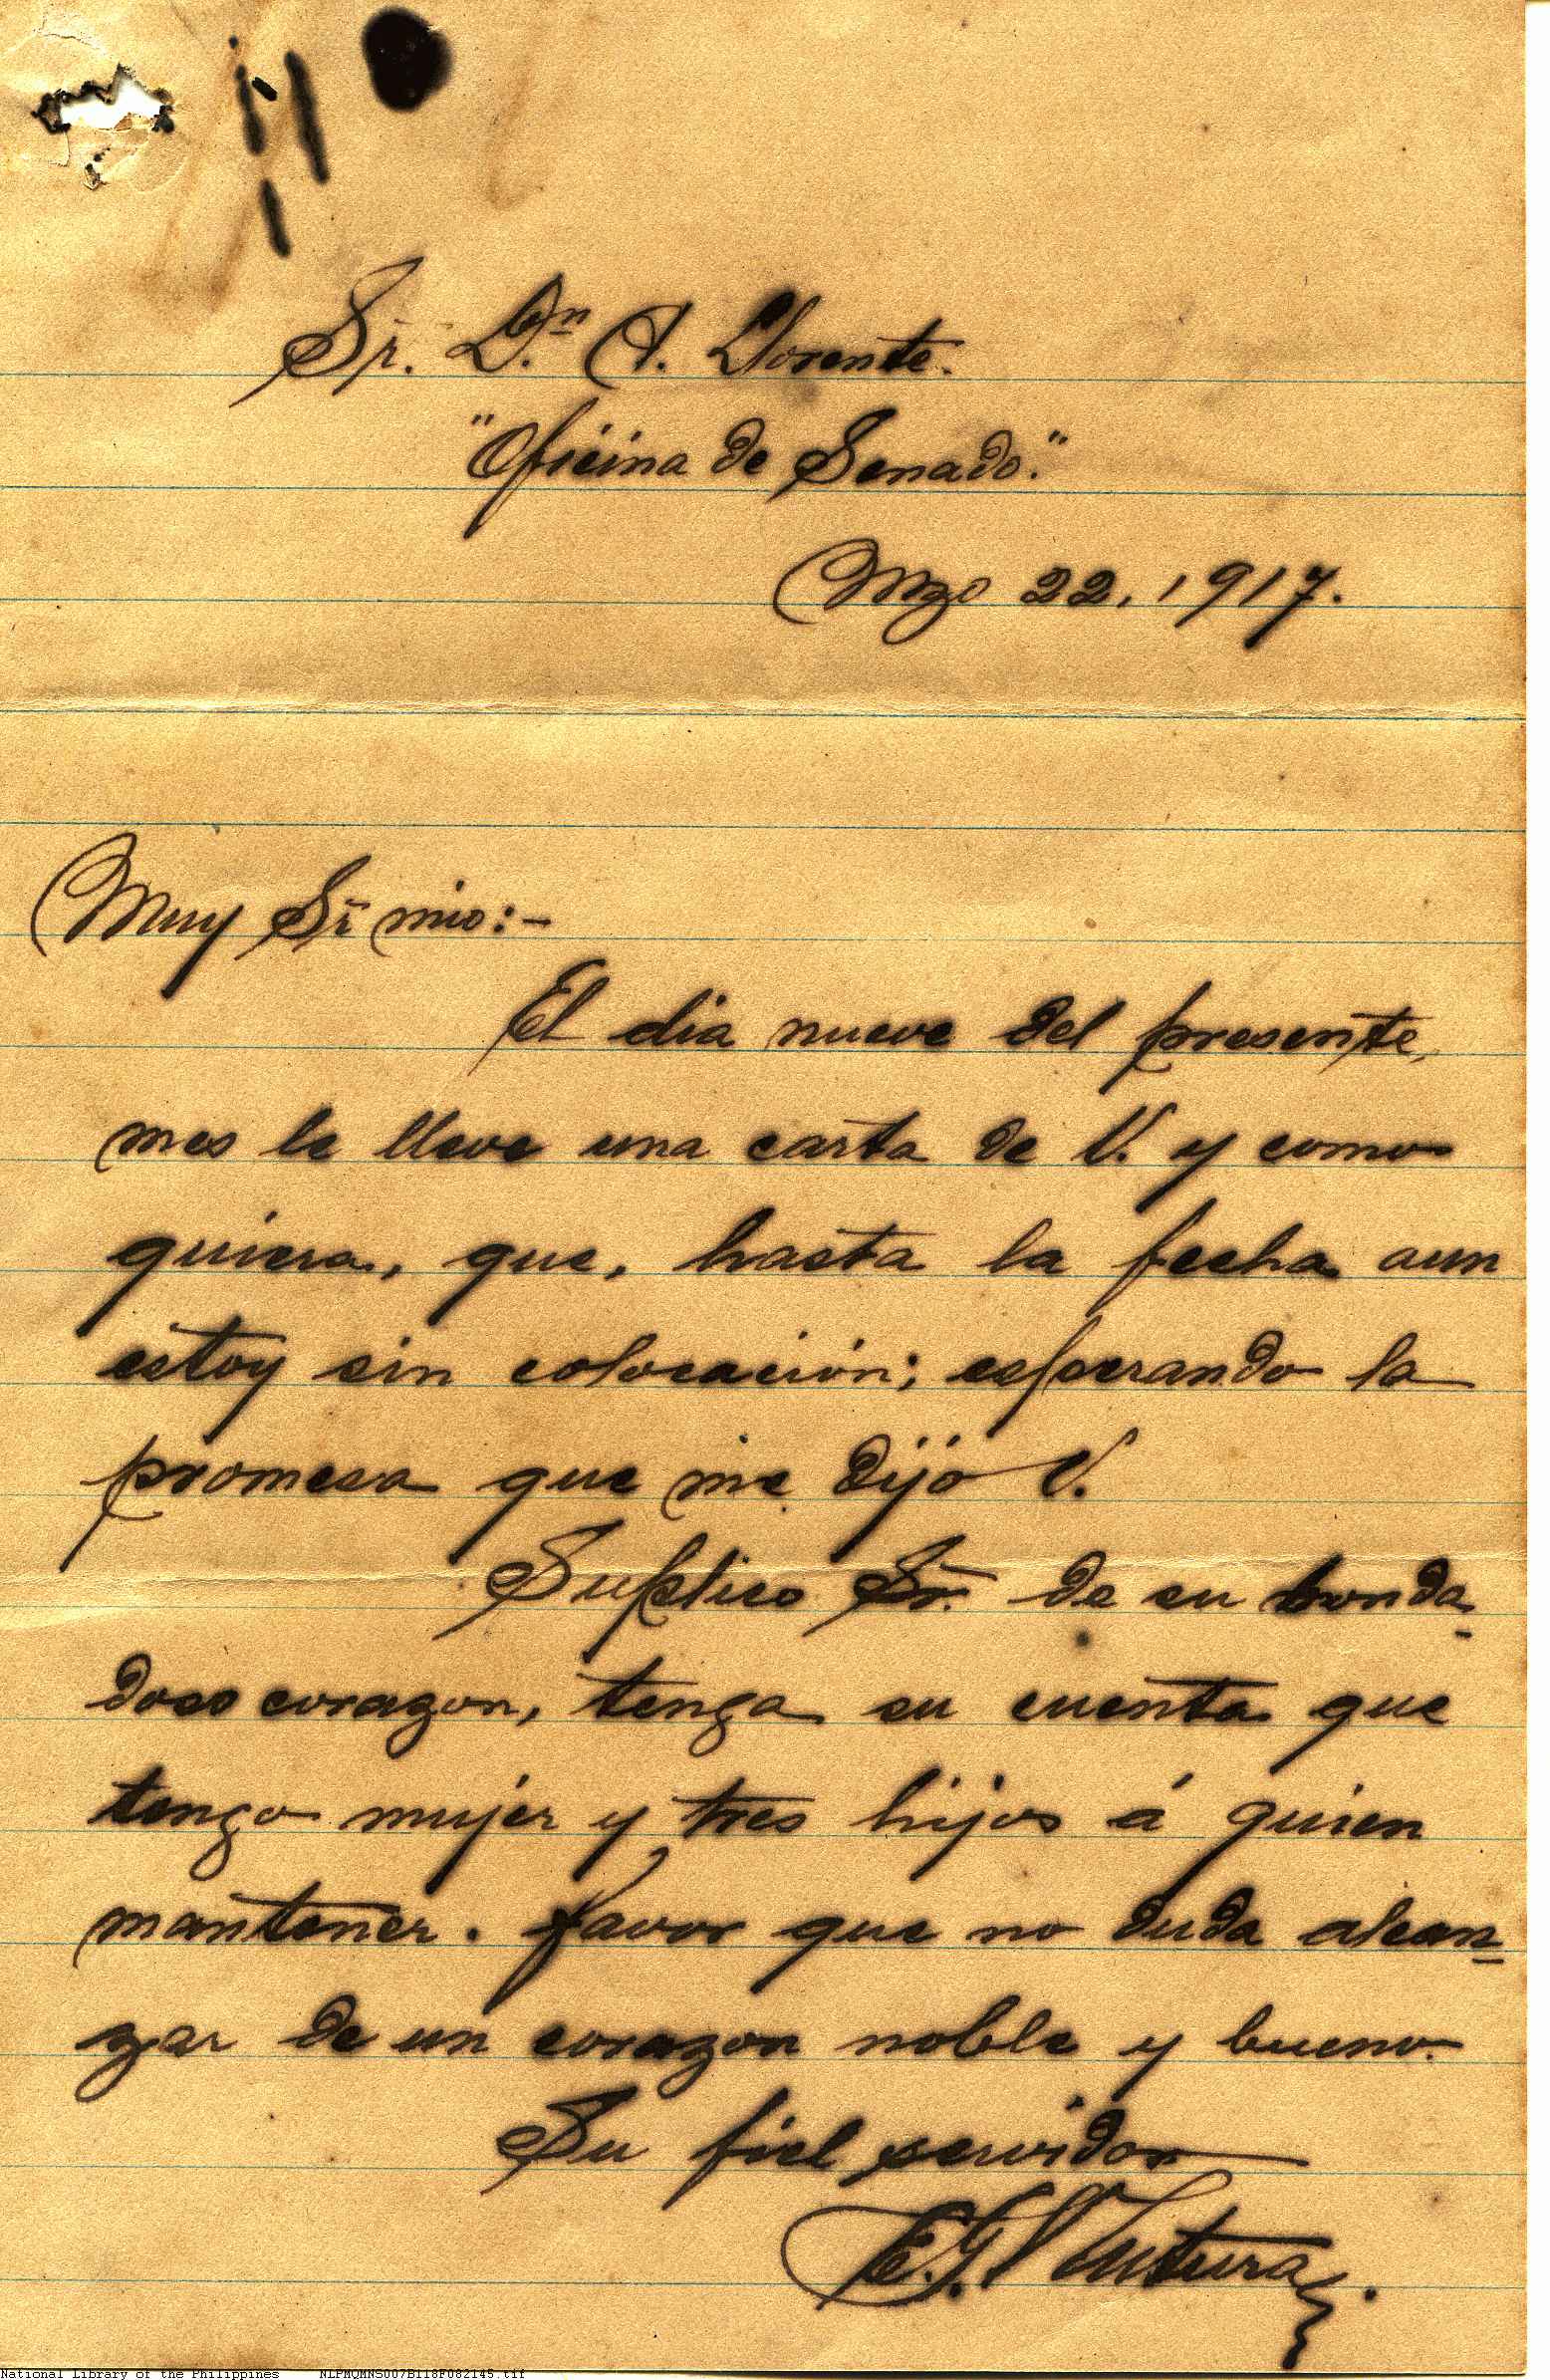 Sr. D.n A. Llorente.
"Oficina de Senado."
Mzo 22, 1917.
Muy Sr. mio:-
El dia nueve del presente,
mes le lleve una carta de V. y como
quiera, que, hasta la fecha aun
estoy sin colocación; esperando la
promesa que me dijó V.
Suplico Sr. de su bonda-
doso corazon, tenga en cuenta que
tengo mujer y tres hijos á quien
mantener. favor que no duda alcan-
zar de un corazon noble y bueno.
Su fiel servidor
E. G. Ventura.
National Library of the Philippines NLPMQMNS007B118F082145.tif